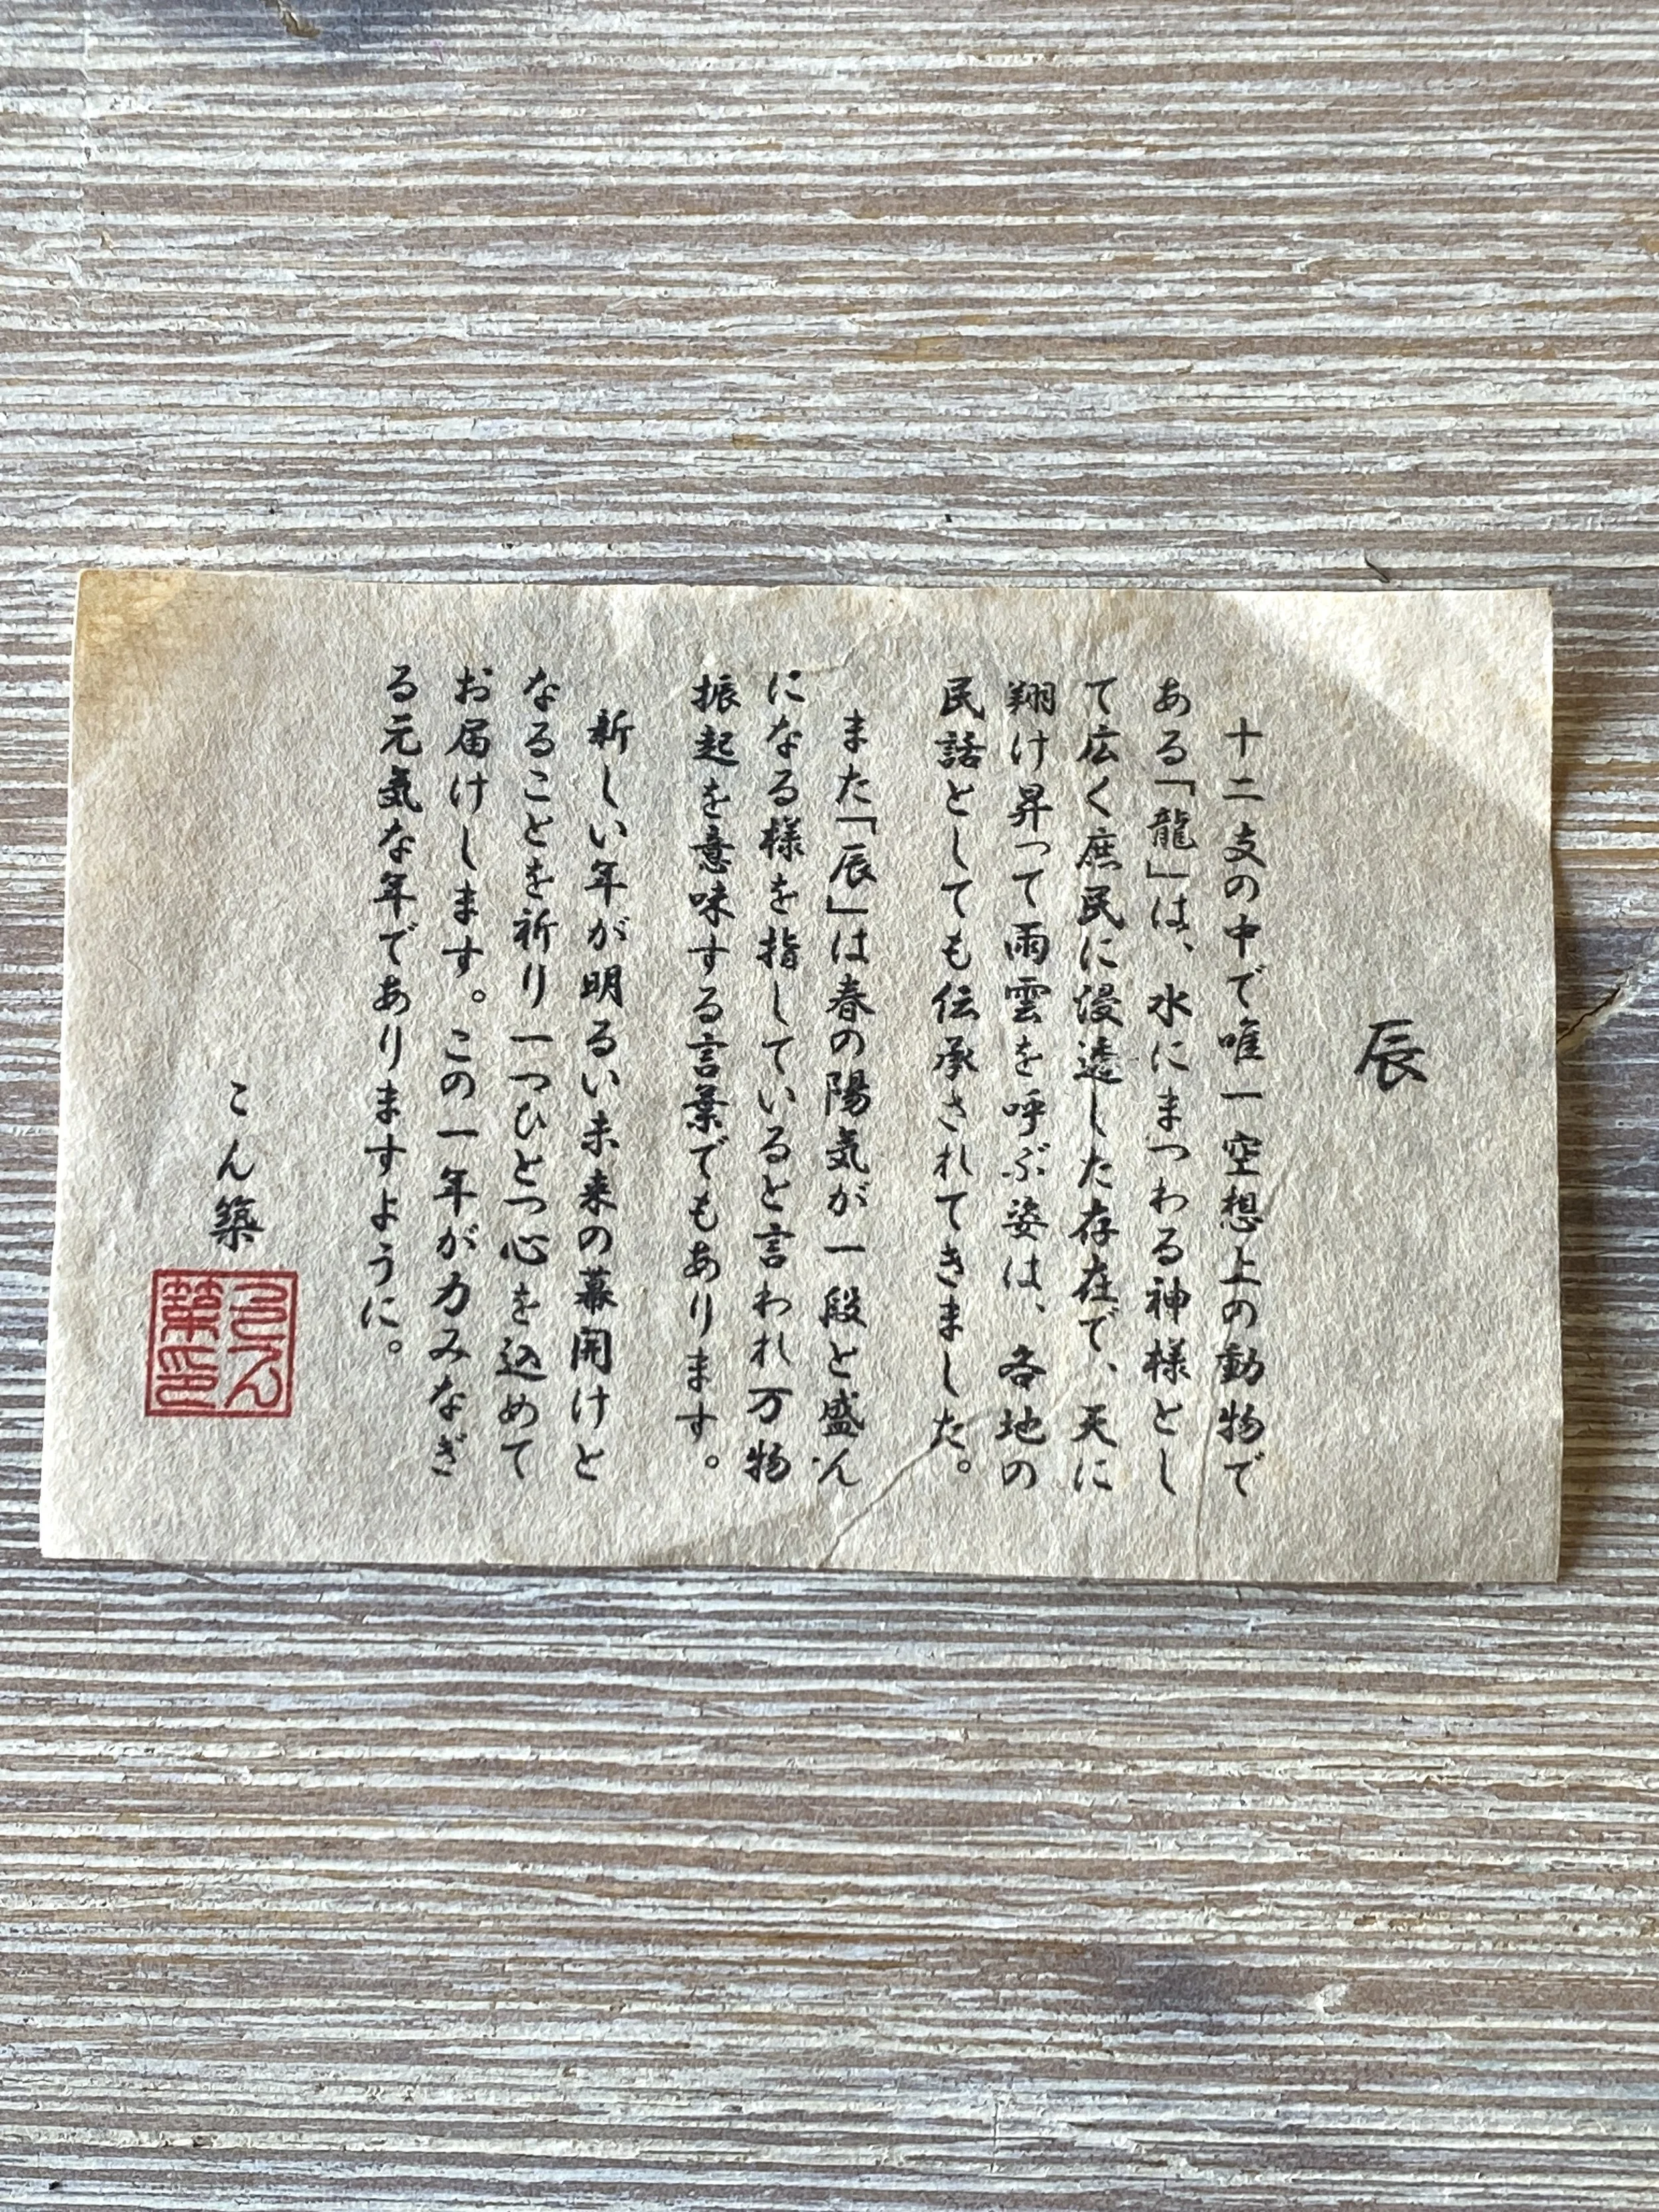 辰
十二支の中で唯一空想上の動物で
ある「龍」は、水にまつわる神様とし
て広く庶民に浸透した存在で、天に
翔け昇って雨雲を呼ぶ姿は、各地の
民話としても伝承されてきました。
また「辰」は春の陽気が一段と盛ん
になる様を指していると言われ万物
振起を意味する言葉でもあります。
新しい年が明るい未来の幕開けと
なることを祈り一つひとつ心を込めて
お届けします。この一年が力みなぎ
る元気な年でありますように。
こん築
こん
築印